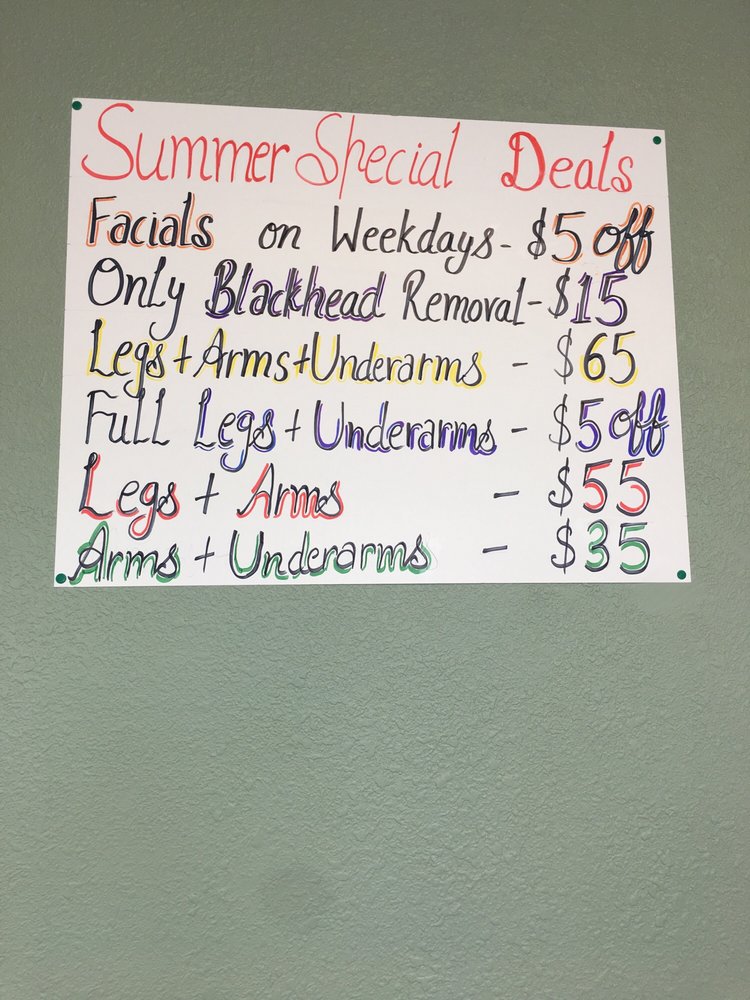 Summer Special Deals
Facials on Weekdays - $5 off
Only Blackhead Removal - $15
Legs + Arms + Underarms - $65
Full Legs + Underarms - $5 off
Legs + Arms - $55
Arms + Underarms - $35